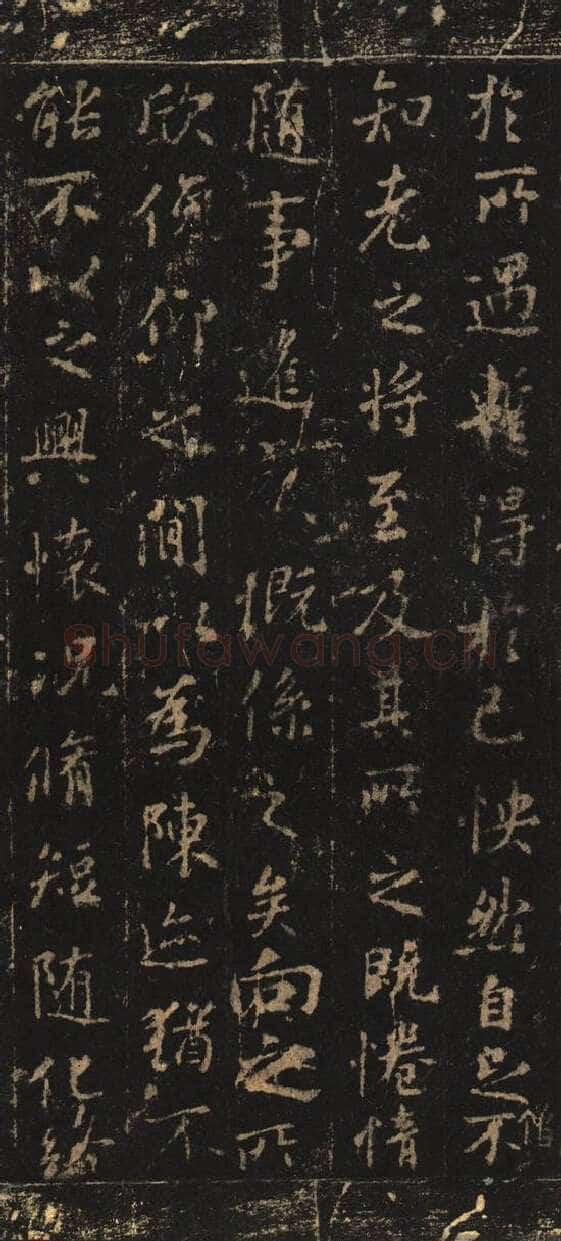 於所遇暫得於己怏然自足不
僧
知老之將至及其所之既惓情
隨事遷感慨係之矣向之所
欣俛仰之間以為陳迹猶不
能不以之興懷況脩短隨化終
shufawang.cn